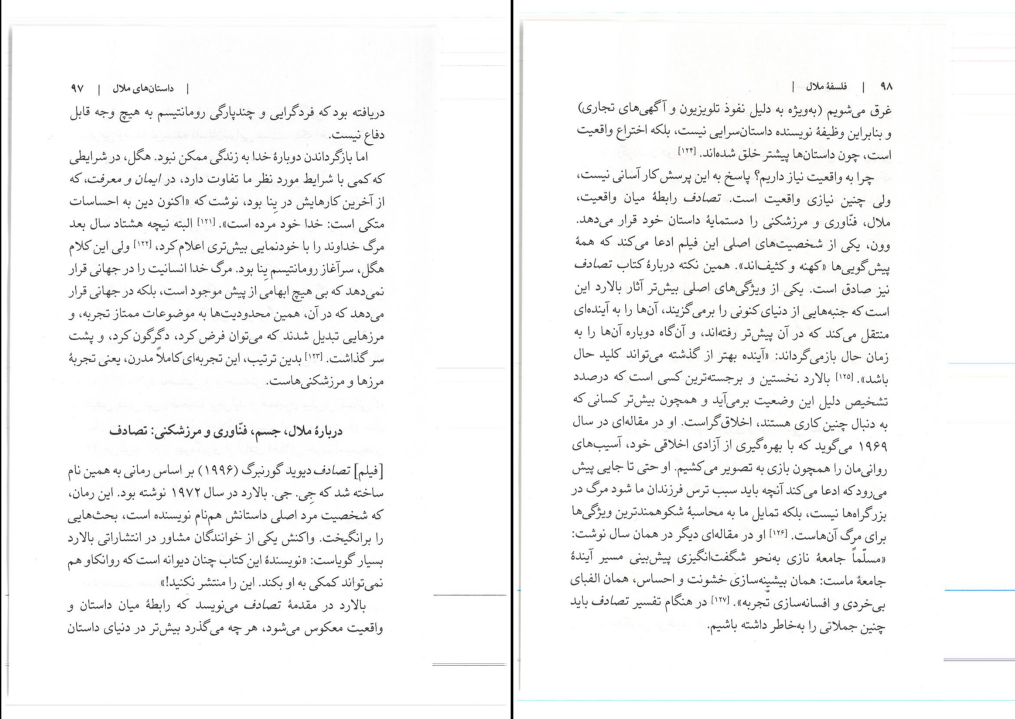 | داستان‌های ملال | ۹۷
دریافته بود که فردگرایی و چندپارگی رومانتیسم به هیچ وجه قابل
دفاع نیست.
اما بازگرداندن دوبارهٔ خدا به زندگی ممکن نبود. هگل، در شرایطی
که کمی با شرایط مورد نظر ما تفاوت دارد، در ایمان و معرفت، که
از آخرین کارهایش در یِنا بود، نوشت که «اکنون دین به احساسات
متکی است: خدا خود مرده است». [۱۲۱] البته نیچه هشتاد سال بعد
مرگ خداوند را با خودنمایی بیش‌تری اعلام کرد، [۱۲۲] ولی این کلام
هگل، سرآغاز رومانتیسم یِنا بود. مرگ خدا انسانیت را در جهانی قرار
نمی‌دهد که بی هیچ ابهامی از پیش موجود است، بلکه در جهانی قرار
می‌دهد که در آن، همین محدودیت‌ها به موضوعات ممتاز تجربه، و
مرزهایی تبدیل شدند که می‌توان فرض کرد، دگرگون کرد، و پشت
سر گذاشت. [۱۲۳] بدین ترتیب، این تجربه‌ای کاملاً مدرن، یعنی تجربهٔ
مرزها و مرزشکنی‌هاست.
دربارهٔ ملال، جسم، فنّاوری و مرزشکنی: تصادف
[فیلم] تصادف دیوید گورنبرگ (۱۹۹۶) بر اساس رمانی به همین نام
ساخته شد که جِی. جی. بالارد در سال ۱۹۷۲ نوشته بود. این رمان،
که شخصیت مرد اصلی داستانش هم‌نام نویسنده است، بحث‌هایی
را برانگیخت. واکنش یکی از خوانندگان مشاور در انتشاراتی بالارد
بسیار گویاست: «نویسندهٔ این کتاب چنان دیوانه است که روانکاو هم
نمی‌تواند کمکی به او بکند. این را منتشر نکنید!»
بالارد در مقدمهٔ تصادف می‌نویسد که رابطهٔ میان داستان و
واقعیت معکوس می‌شود، هر چه می‌گذرد بیش‌تر در دنیای داستان
۹۸ | فلسفهٔ ملال |
غرق می‌شویم (به‌ویژه به دلیل نفوذ تلویزیون و آگهی‌های تجاری)
و بنابراین وظیفهٔ نویسنده داستان‌سرایی نیست، بلکه اختراع واقعیت
است، چون داستان‌ها پیشتر خلق شده‌اند. [۱۲۴]
چرا به واقعیت نیاز داریم؟ پاسخ به این پرسش کار آسانی نیست،
ولی چنین نیازی واقعیت است. تصادف رابطهٔ میان واقعیت،
ملال، فنّاوری و مرزشکنی را دستمایهٔ داستان خود قرار می‌دهد.
وون، یکی از شخصیت‌های اصلی این فیلم ادعا می‌کند که همهٔ
پیش‌گویی‌ها «کهنه و کثیف‌اند». همین نکته دربارهٔ کتاب تصادف
نیز صادق است. یکی از ویژگی‌های اصلی بیش‌تر آثار بالارد این
است که جنبه‌هایی از دنیای کنونی را برمی‌گزیند، آن‌ها را به آینده‌ای
منتقل می‌کند که در آن پیش‌تر رفته‌اند، و آن‌گاه دوباره آن‌ها را به
زمان حال بازمی‌گرداند: «آینده بهتر از گذشته می‌تواند کلید حال
باشد». [۱۲۵] بالارد نخستین و برجسته‌ترین کسی است که درصدد
تشخیص دلیل این وضعیت برمی‌آید و همچون بیش‌تر کسانی که
به دنبال چنین کاری هستند، اخلاق‌گراست. او در مقاله‌ای در سال
۱۹۶۹ می‌گوید که با بهره‌گیری از آزادی اخلاقی خود، آسیب‌های
روانی‌مان را همچون بازی به تصویر می‌کشیم. او حتی تا جایی پیش
می‌رود که ادعا می‌کند آنچه باید سبب ترس فرزندان ما شود مرگ در
بزرگراه‌ها نیست، بلکه تمایل ما به محاسبهٔ شکوهمندترین ویژگی‌ها
برای مرگ آن‌هاست. [۱۲۶] او در مقاله‌ای دیگر در همان سال نوشت:
«مسلّماً جامعهٔ نازی به‌نحو شگفت‌انگیزی پیش‌بینی مسیر آیندهٔ
جامعهٔ ماست: همان بیشینه‌سازی خشونت و احساس، همان الفبای
بی‌خردی و افسانه‌سازی تجربه». [۱۲۷] در هنگام تفسیر تصادف باید
چنین جملاتی را به‌خاطر داشته باشیم.